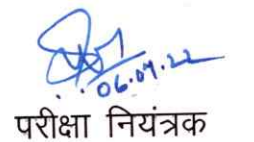 06.09.22
परीक्षा नियंत्रक